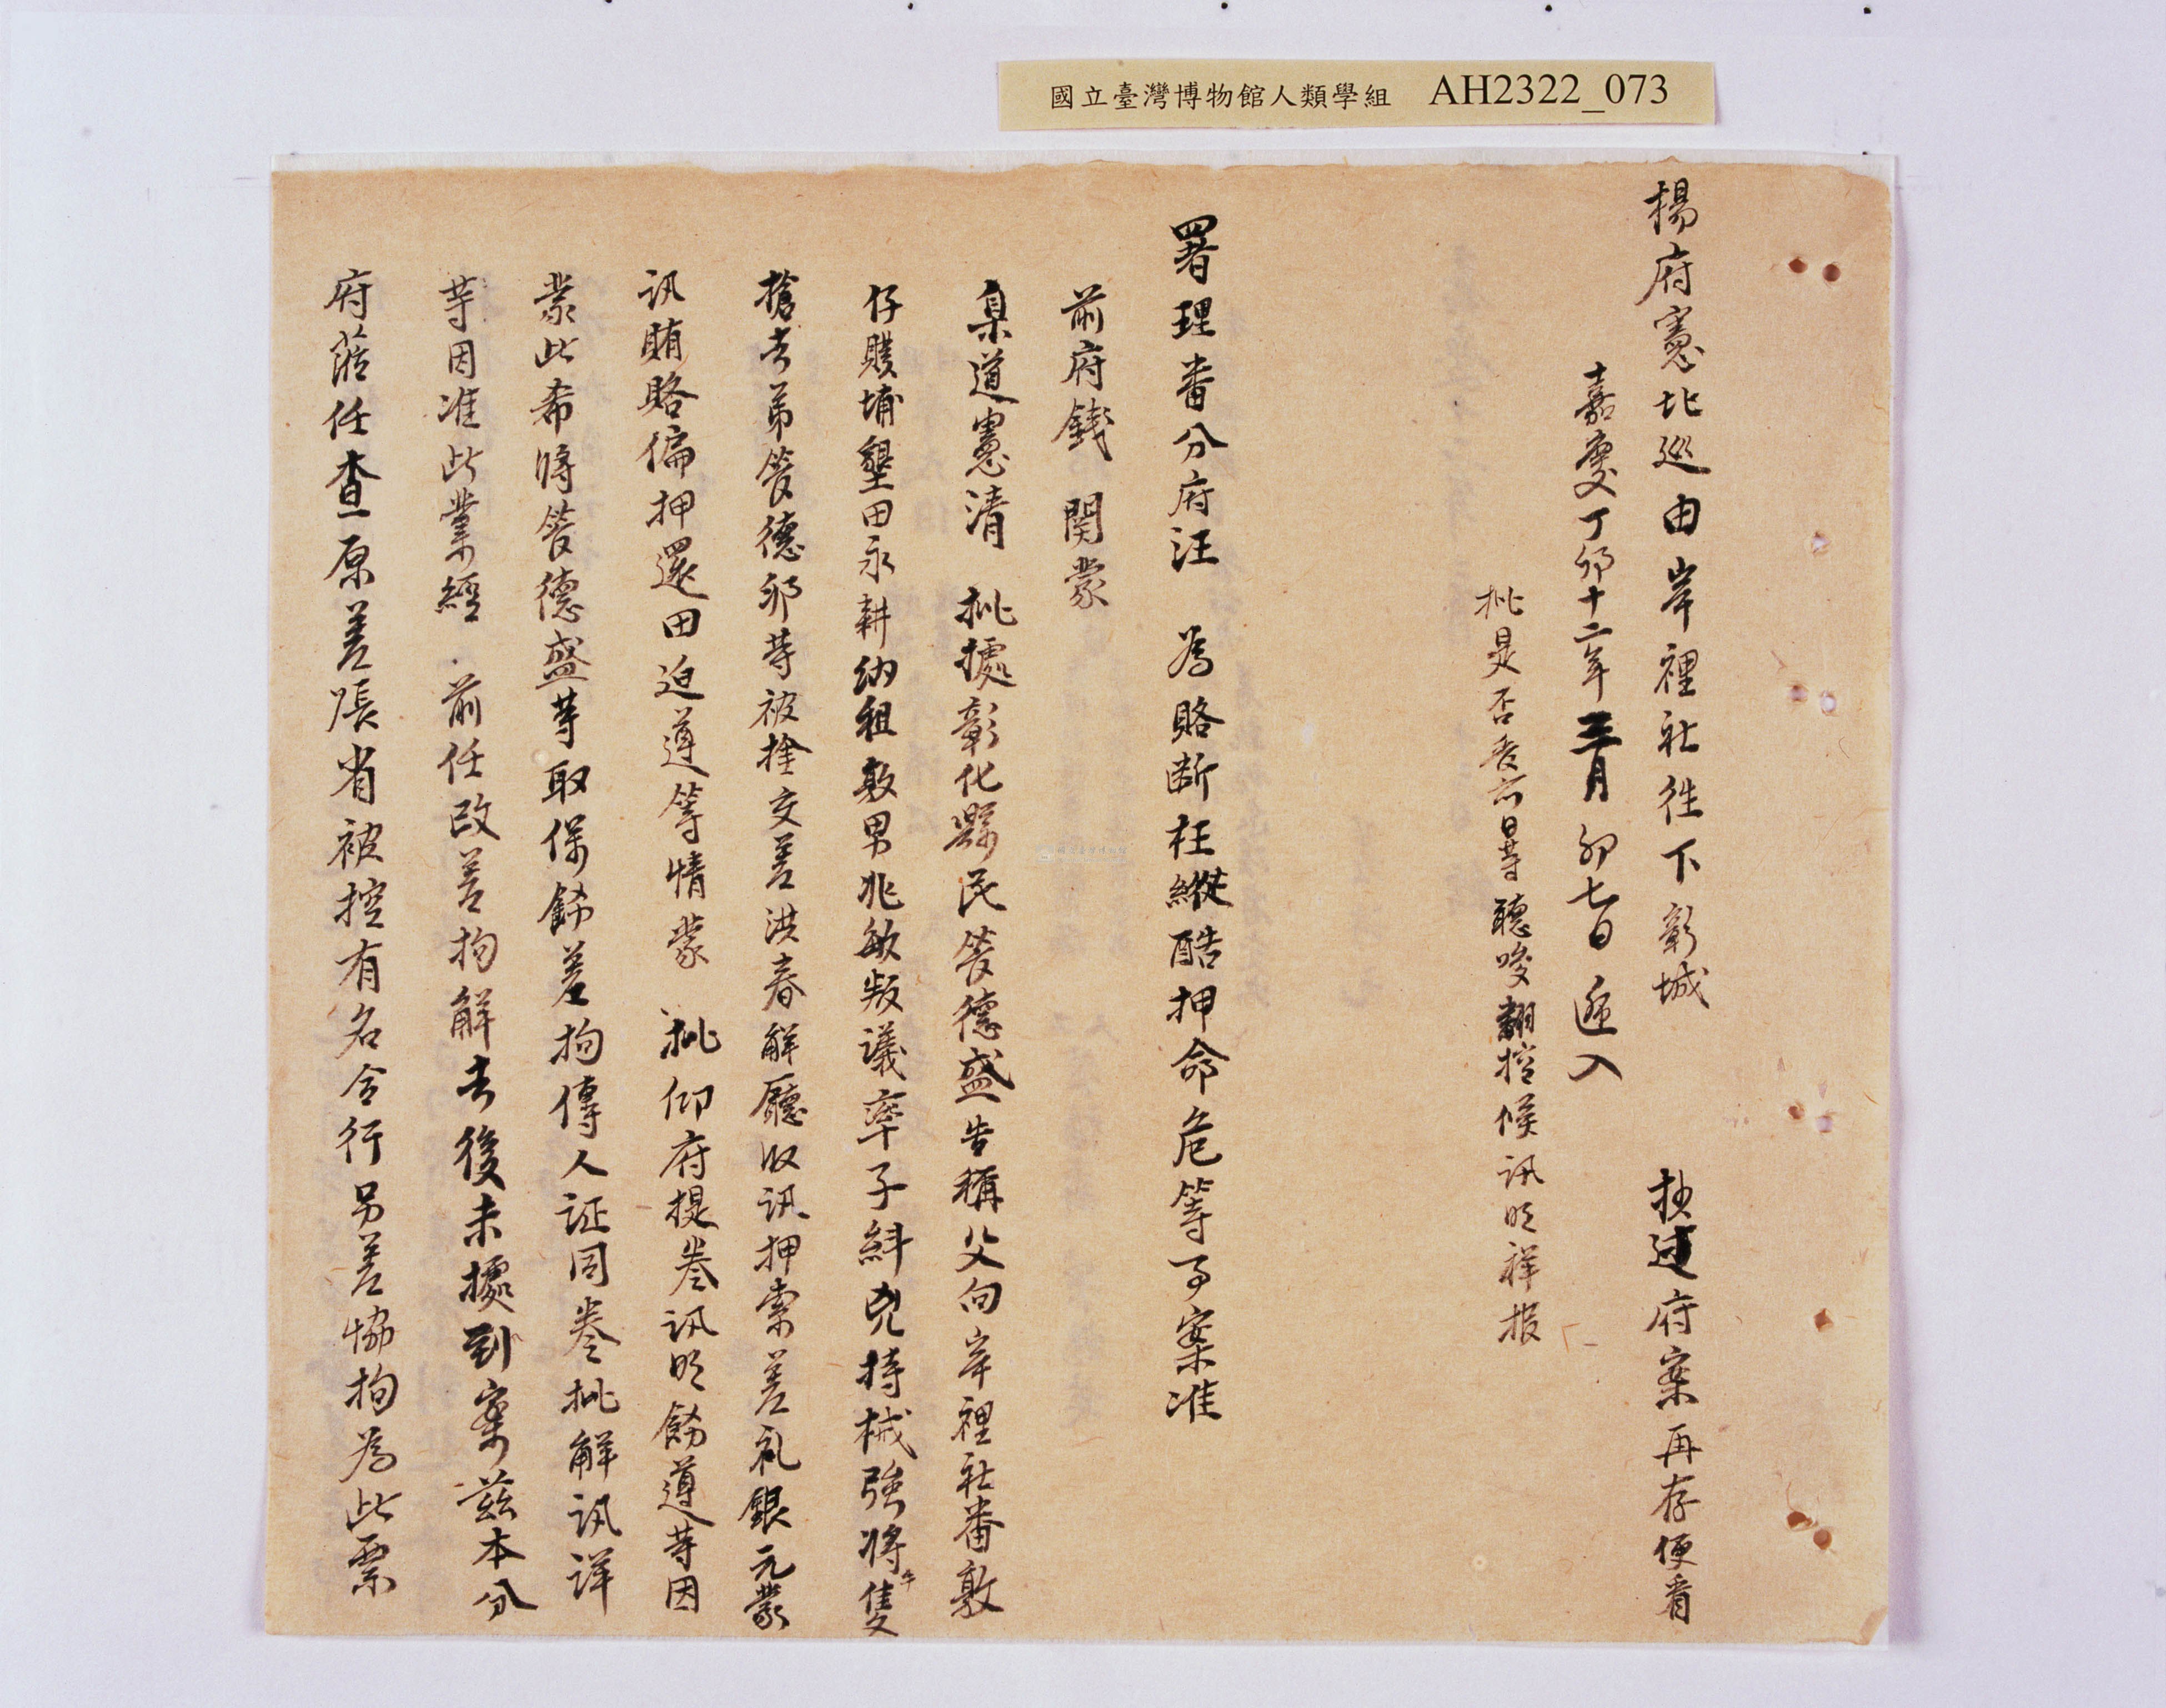 國立臺灣博物館人類學組 AH2322_073
楊府憲北巡由岸裡社徃下彰城 抄过府案再存便看
嘉慶丁卯十二年三月初七日遞入
批是否香亦曷等聽唆翻控候讯明祥报
署理番分府汪 為賂断枉縱酷押命危等事案准
前府錢 関蒙
臬道憲清 批據彰化縣民管德盛告稱父向岸裡社番敦
仔贌埔墾田永耕納租敦男兆敏叛議率子糾兇持械強将牛隻
搶去弟管德邜等被拴交差洪春解廳収讯押索差礼銀元蒙
讯賄賂偏押還田迫遵等情蒙 批仰府提卷讯明飭遵等因
蒙此希将管德盛等取保飭差拘傳人证同卷批解讯详
等因准此業經 前任改差拘解去後未據到案兹本分
府蒞任查原差張省被控有名合行另差協拘為此票